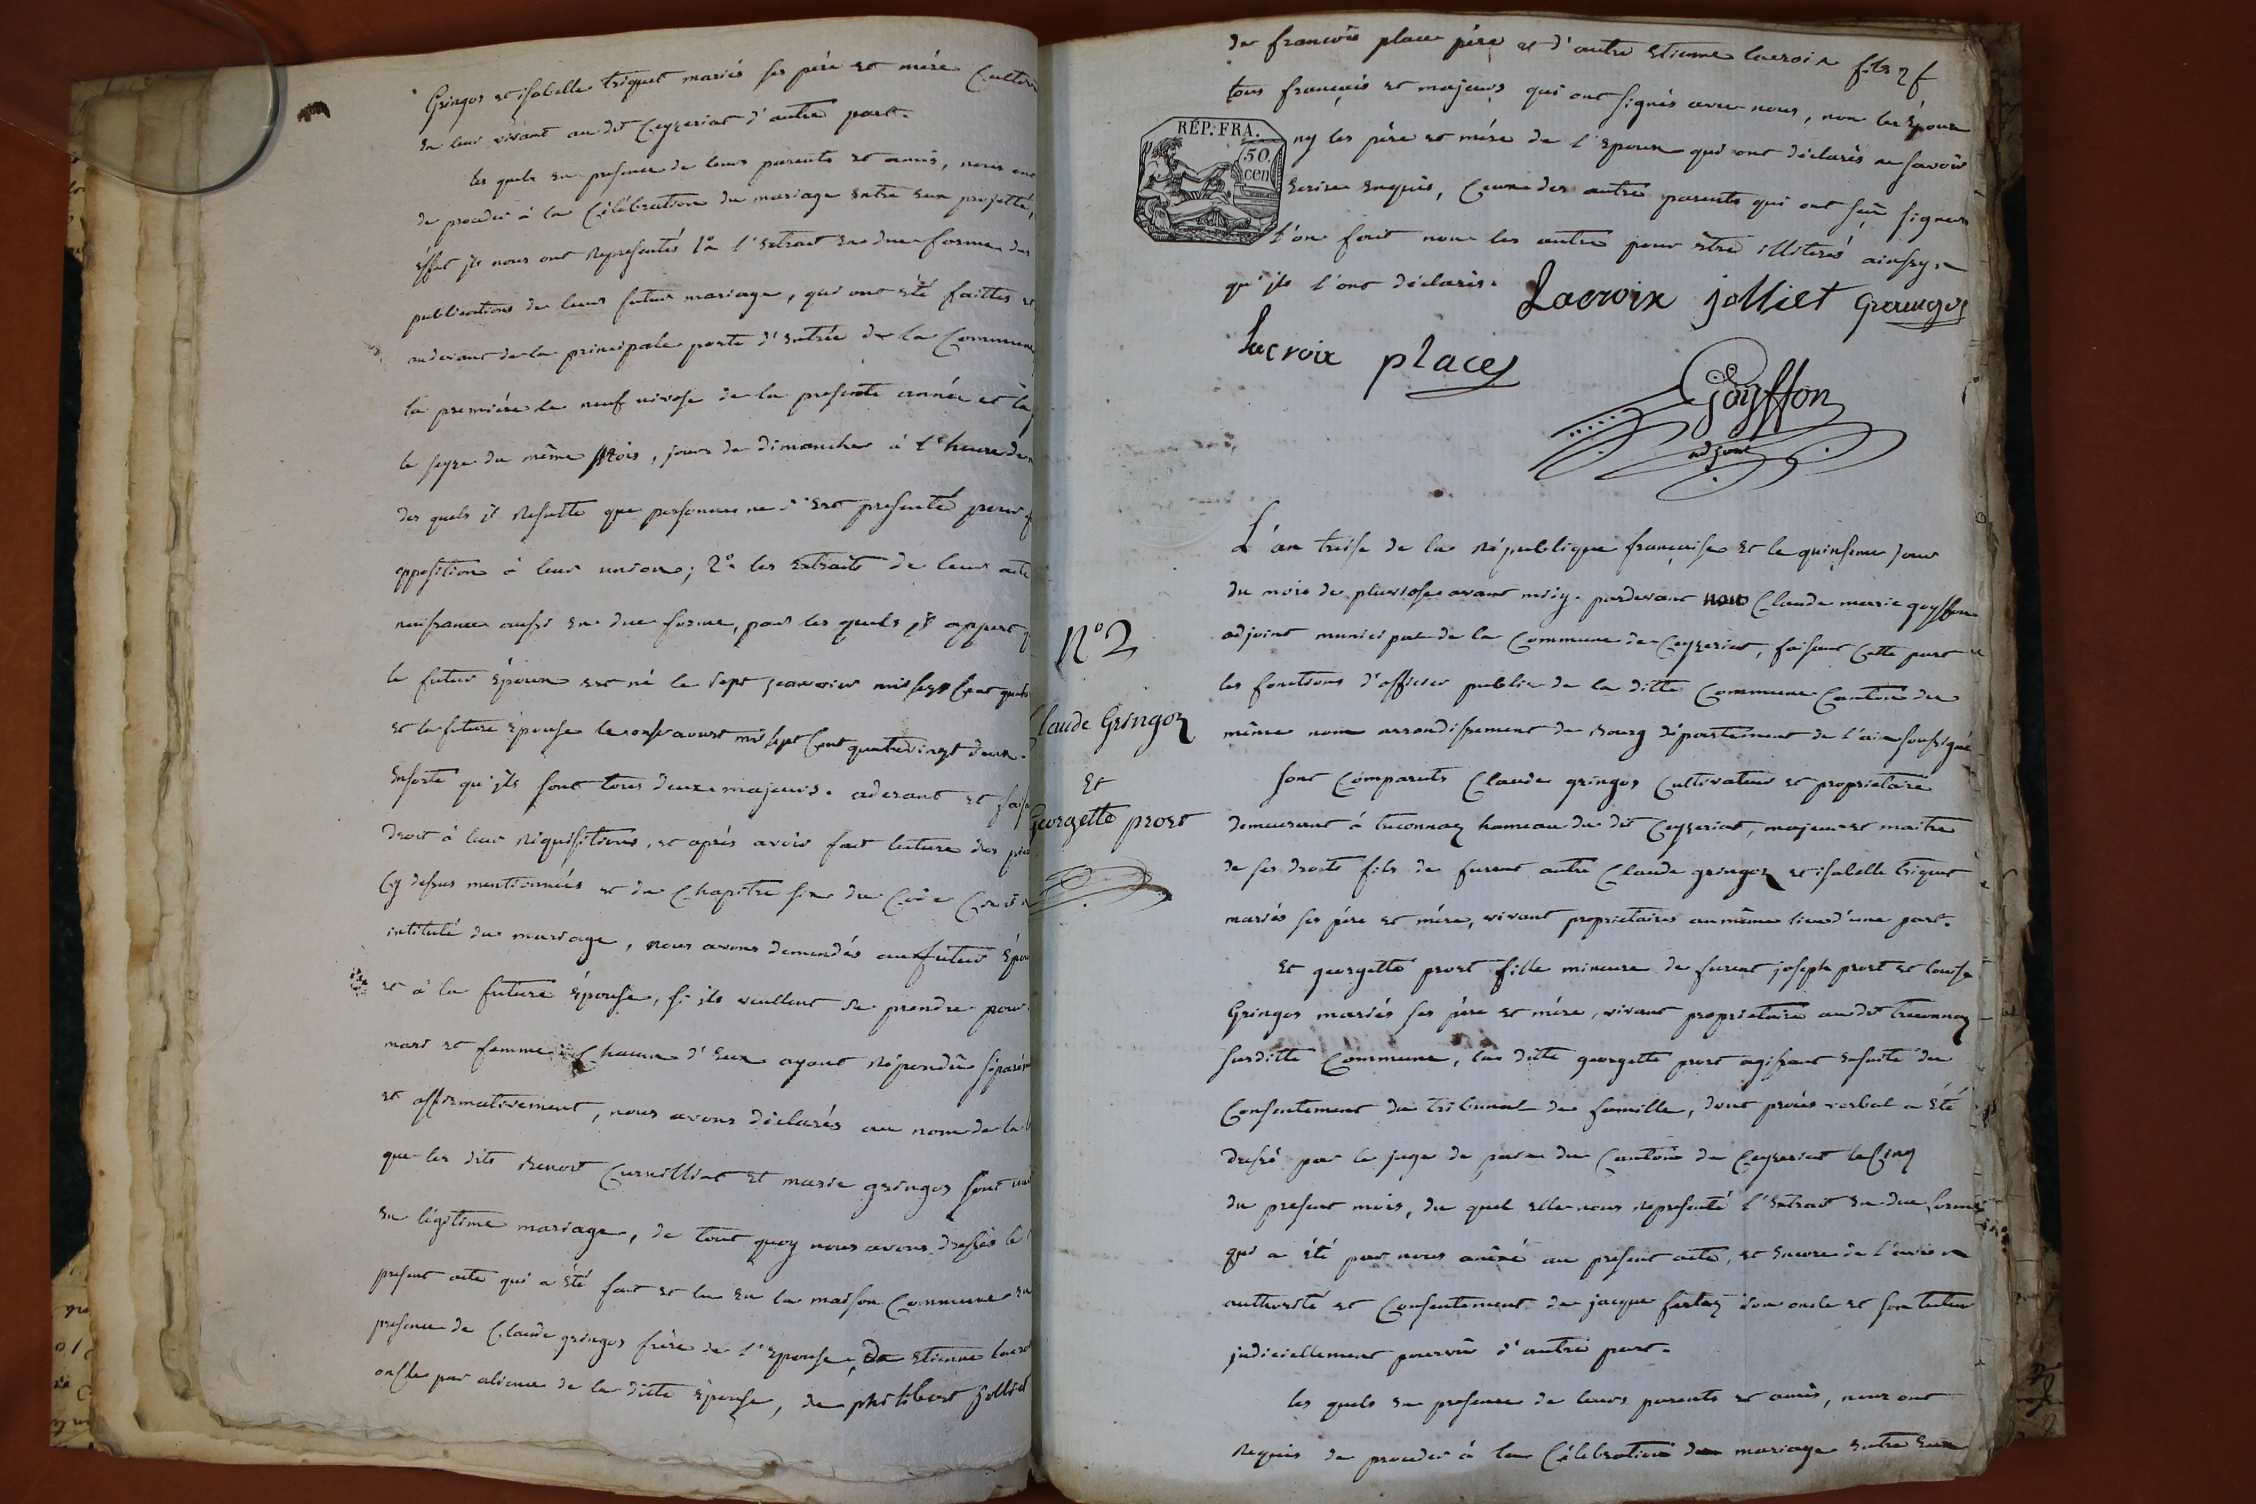 Gringoz et isabelle triquet mariés ses père et mère Cultiv
en leur vivant au dit Ceyzeriat d'autre part.
les quels en presence de leurs parents et amis, nous ont
de proceder à la Célébration du mariage entre eux projetté,
éffet ils nous ont representés 1° l'extrait en due forme des
publications de leur futur mariage, qui ont été faittes et
au devant de la principale porte d'entrée de la Commune
la première le neuf nivose de la presente année et la
le seyze du même Mois, jours de dimanche à l'heure de
des quels il resulte que personne ne s'est presenté pour
opposition à leur union; 2° les extraits de leur acte
naissance aussi en due forme, par les quels il appert q
le futur époux est né le sept janvier mil sept Cent quatr
et la future épouse le onse aoust mil sept Cent quatrevingt deux.
Ensorte qu'ils sont tous deux majeurs. aderant et fais
droit à leur réquisitions, et après avoir fait lecture des piè
Cy dessus mentionnées et du Chapitre six du Code Civil
intitulé du mariage, nous avons demandés au futur épou
et à la future épouse, si ils veullent se prendre pour
mari et femme; Chacun d'eux ayant répondu séparém
et affirmativement, nous avons déclarés au nom de la l
que les dits Benoit Curvilliat et marie gringoz sont uni
en légitime mariage, de tout quoy nous avons dressés le
present acte qui a été fait et lu en la maison Commune en
presence de Claude gringoz frère de l'épouse, De Etienne lacroi
oncle par aliance de la ditte épouse, de philibert jolliet
de francois place père et d'autre Etienne lacroix fils
tous français et majeurs qui ont signés avec nous, non les époux
ny les père et mère de l'epoux qui ont déclarés ne savoir
RÉP. FRA.
50 cen
Ecrire enquis, Ceux des autre parents qui ont seu signer
l'on fait non les autres pour être illiterés ainsy
qu'ils l'ont déclarés.
Lacroix jolliet Gringoz
Lacroix place
Goyffon
adjoint
L'an treise de la république française et le quinseme jour
du mois de pluviose avant midy. pardevant nous Claude marie goyffon
adjoint municipal de la Commune de Ceyzeriat, faisant Cette part
les fonctions d'officier public de la ditte Commune Canton du
même nom arrondissement de Bourg département de l'ain soussigné
N° 2
Claude Gringoz
Et
Georgette prost
Sont Comparuts Claude gringoz Cultivateur et proprietaire
demeurant à trconnaz hameau du dit Ceyzeriat, majeur et maitre
de ses droits fils de furent autre Claude gringoz et isabelle triquet
mariés ses père et mère, vivant proprietaires au même lieu d'une part.
Et georgette prost fille mineure de furent joseph prost et louise
Gringoz mariés ses père et mère, vivant proprietaire au dit treconnaz
susditte Commune, la ditte georgette prost agissant ensuite du
Consentement du tribunal de famille, dont procès verbal a été
dressé par le juge de paix du Canton de Ceyzeriat le Cinq
du present mois, du quel elle nous representé l'extrait en due forme
qui a été par nous anéxé au present acte, et encore de l'avis
authorité et Consentement de jacque son oncle et son tuteur
judiciellement pourvu d'autre part.
les quels en presence de leurs parents et amis, nous ont
requis de proceder à la Célebration du mariage entre eux